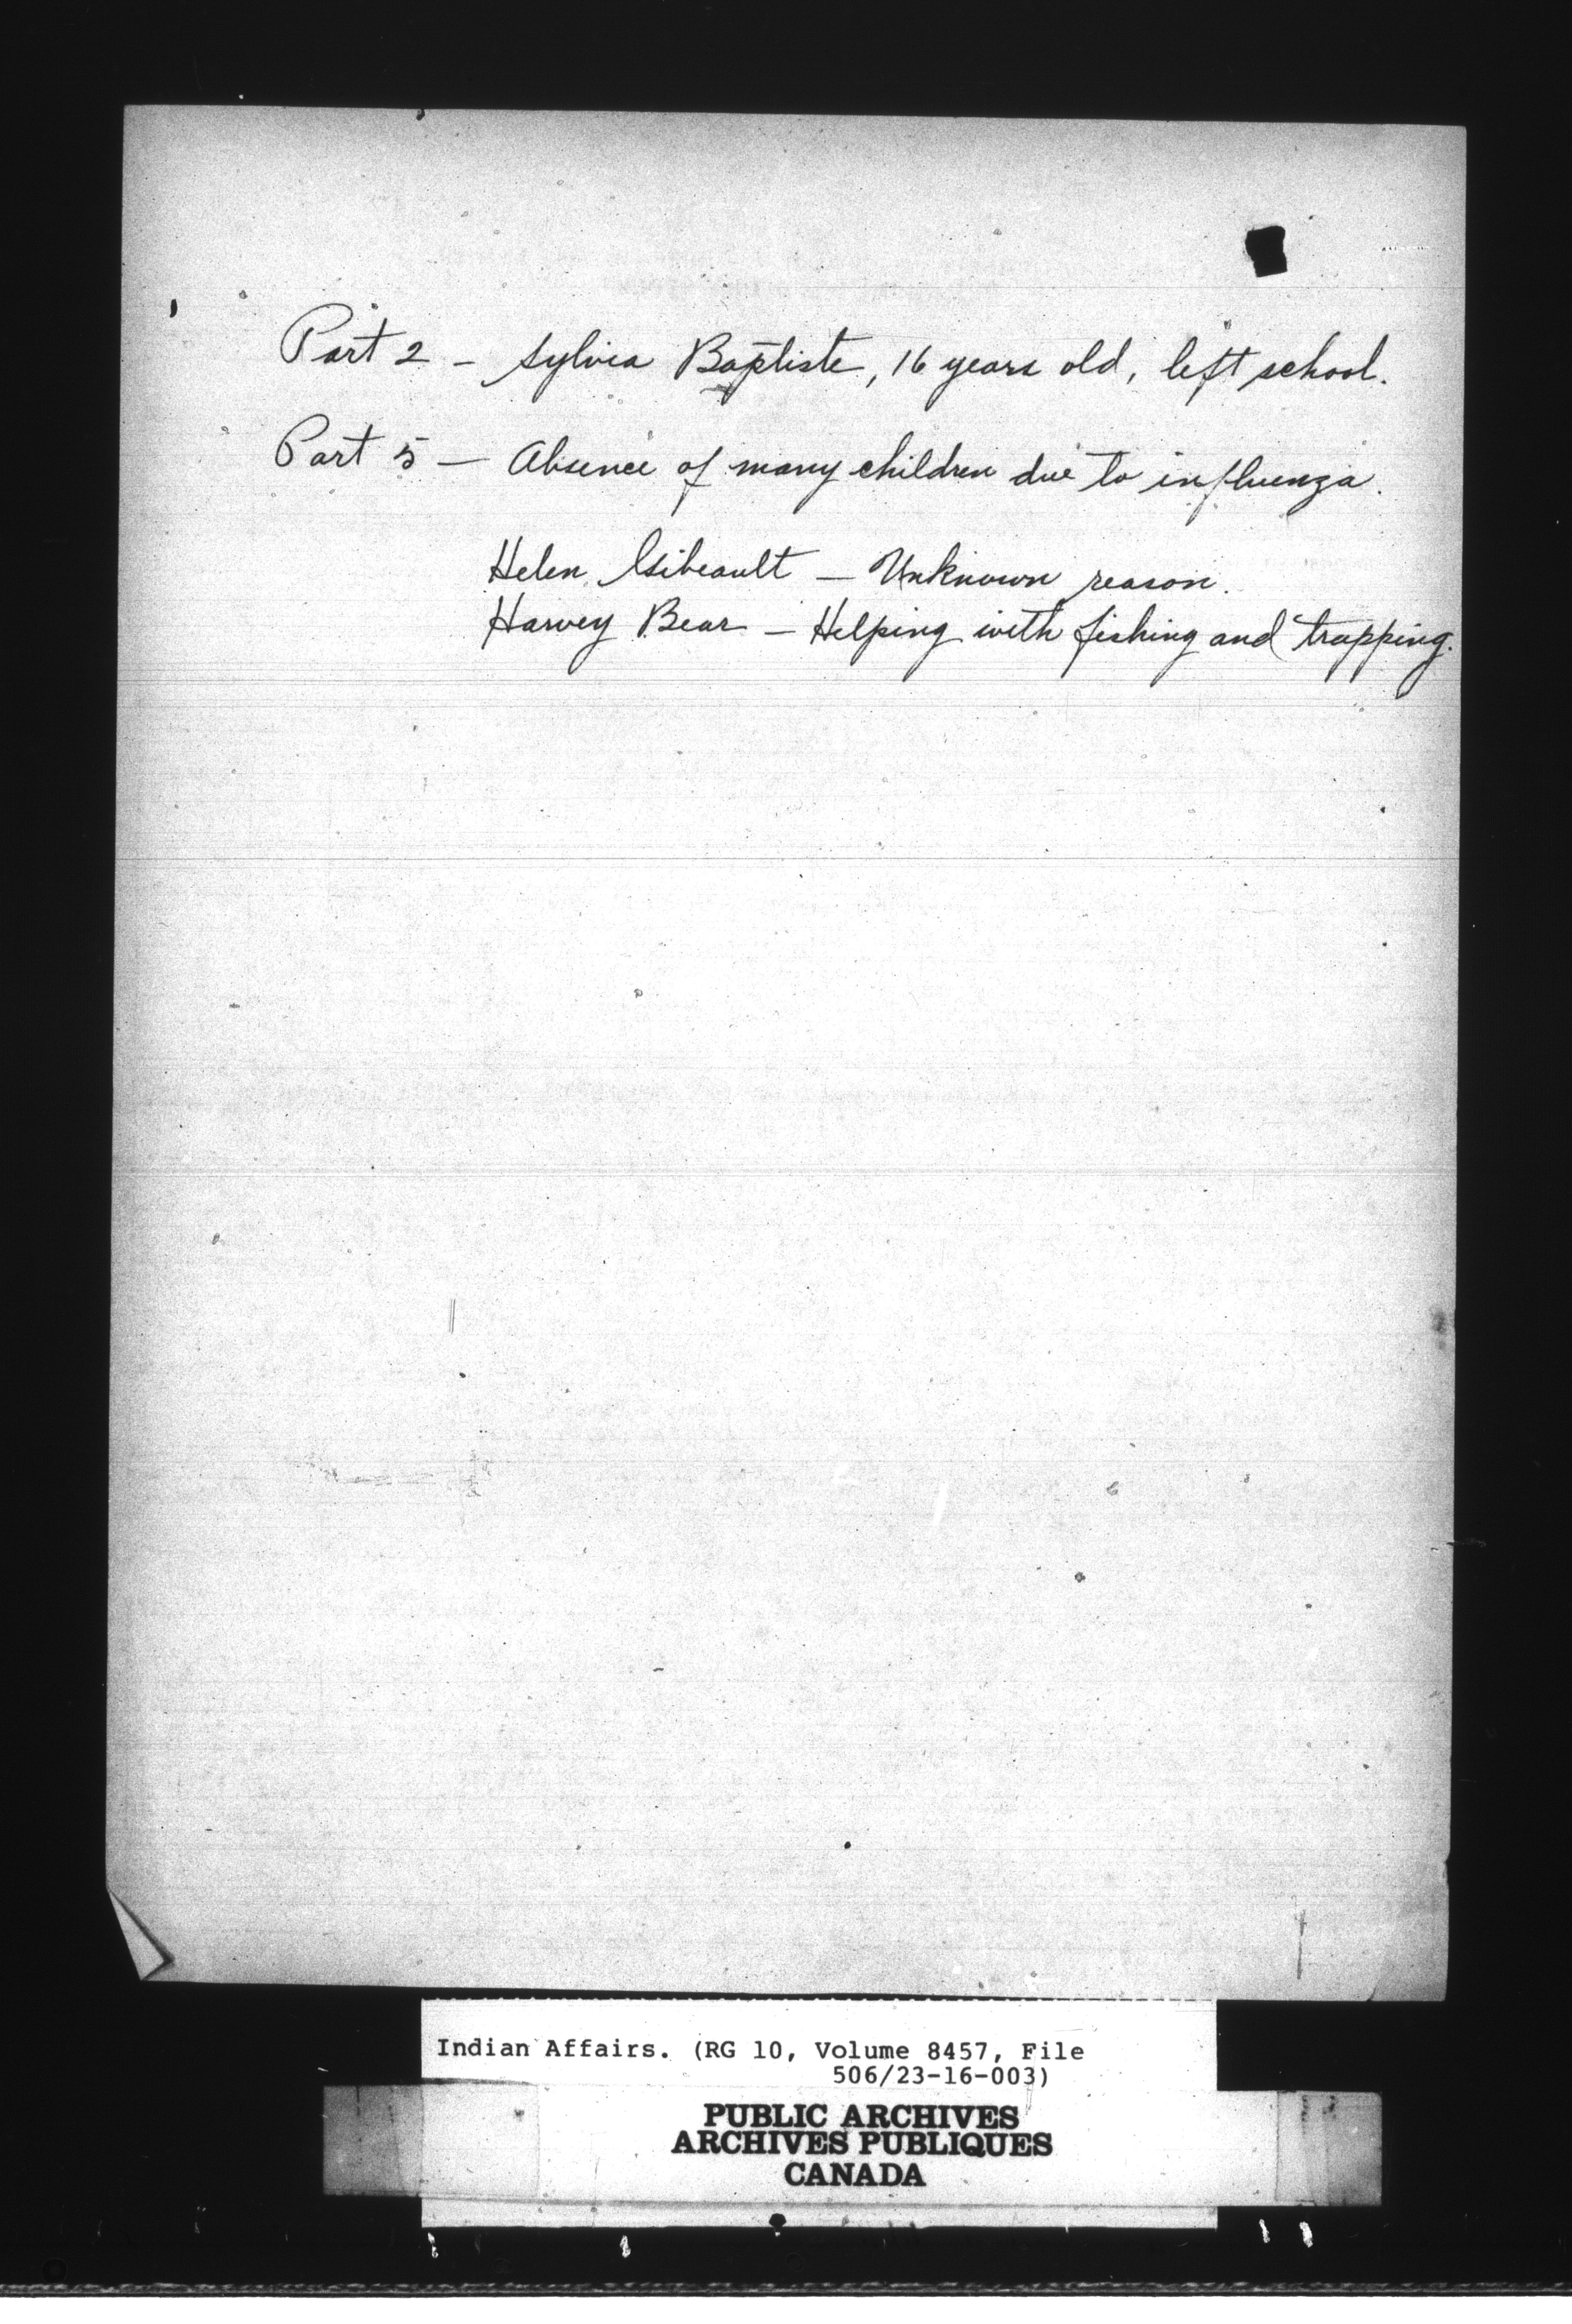 Part 2 - Sylvia Baptiste, 16 years old, left school.
Part 5 - Absence of many children due to influenza.
Helen Gibeault - Unknown reason.
Harvey Bear - Helping with fishing and trapping.
Indian Affairs. (RG 10, Volume 8457, File
506/23-16-003)
PUBLIC ARCHIVES
ARCHIVES PUBLIQUES
CANADA